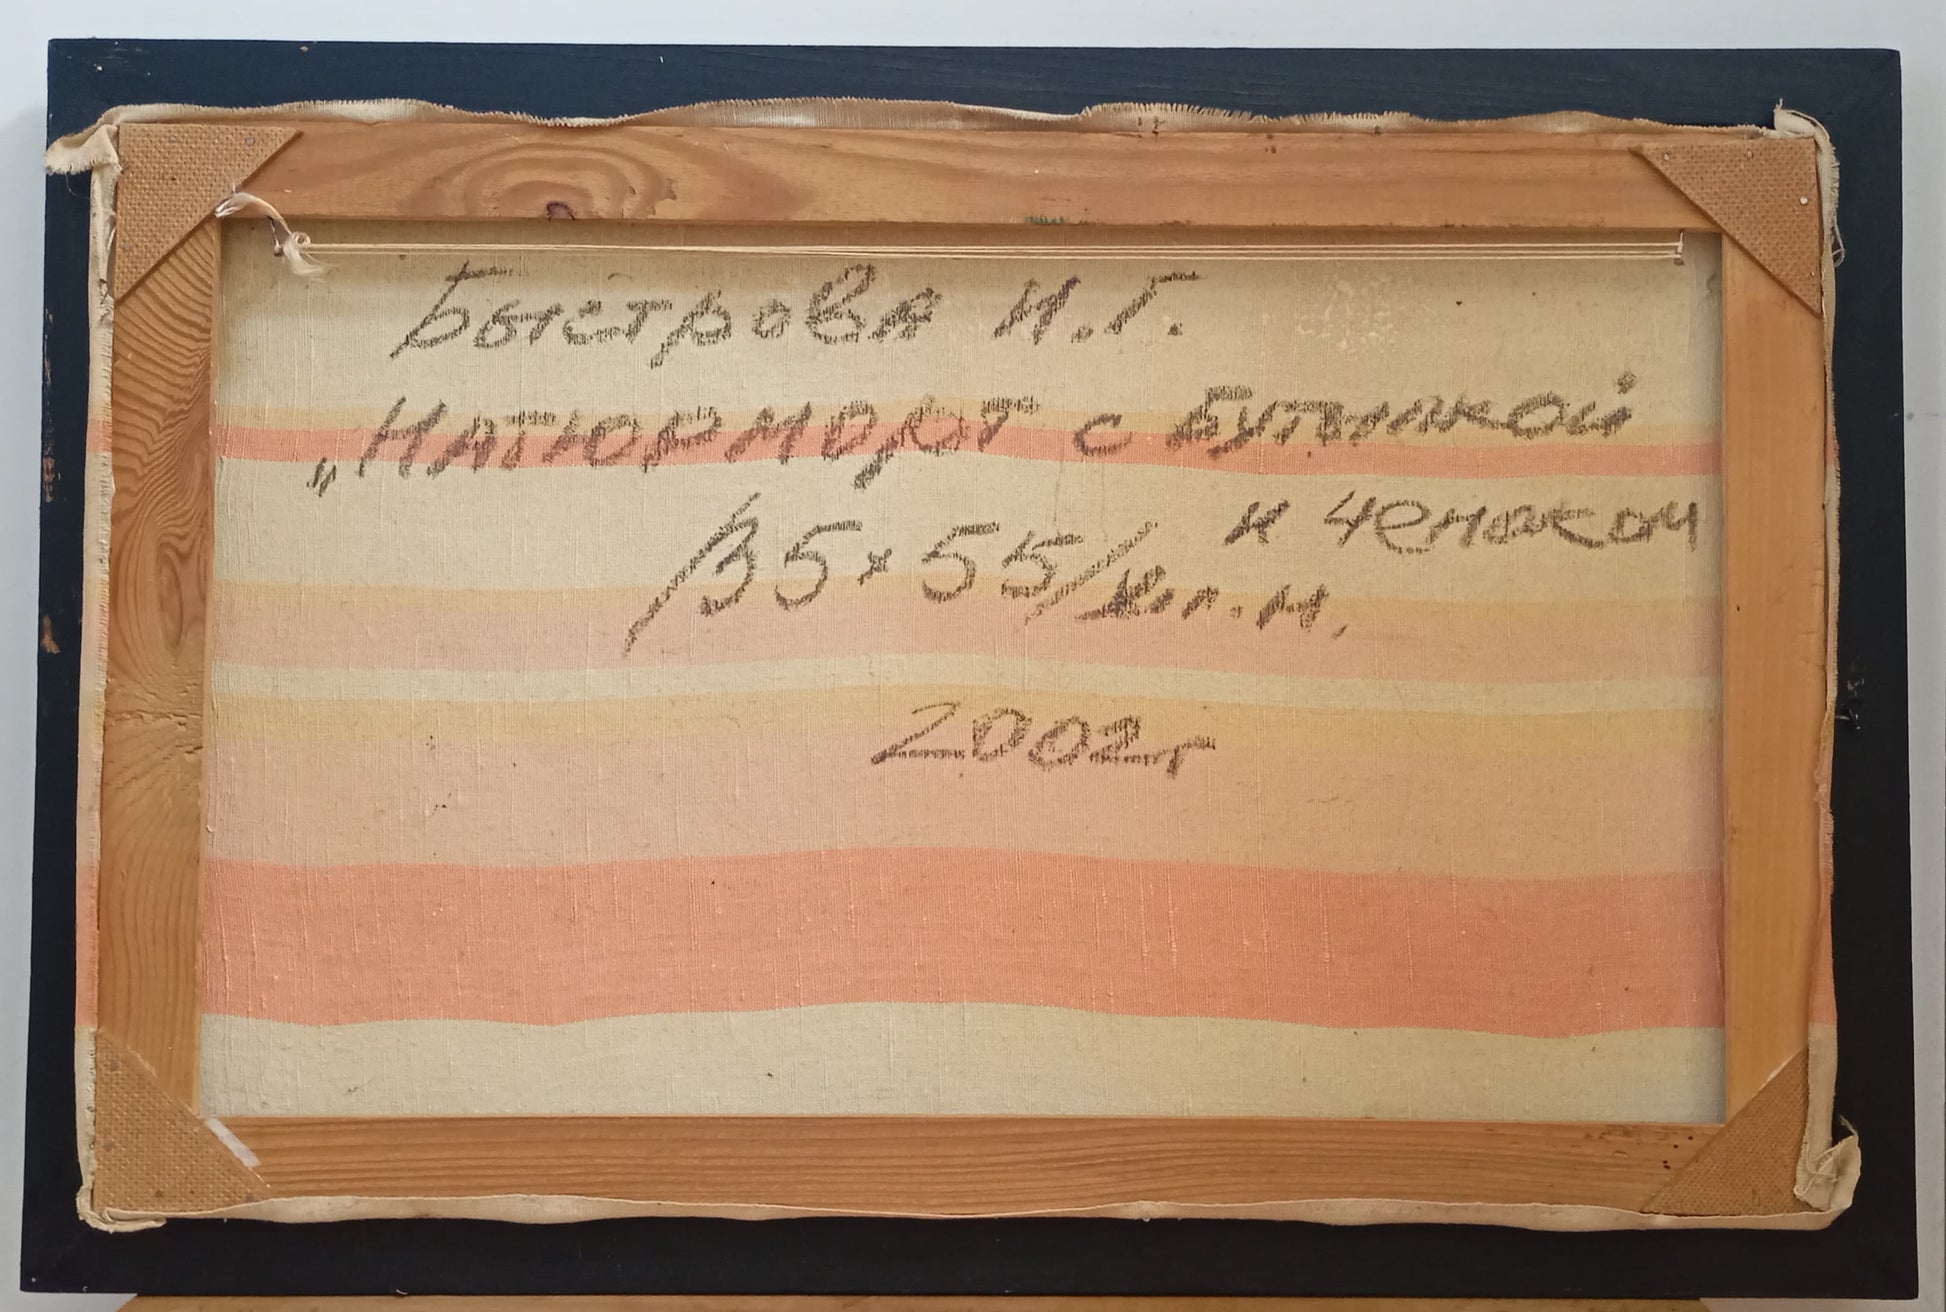 Быстрова И.Г.
„Натюрморт с бутылкой
и чесноком
/35×55/ х.м.
2002г